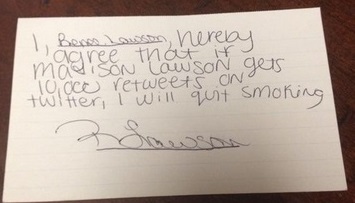 I, Renee Lawson, hereby
agree that if
madison Lawson gets
10,000 retweets on
twitter, I will quit smoking
R Lawson